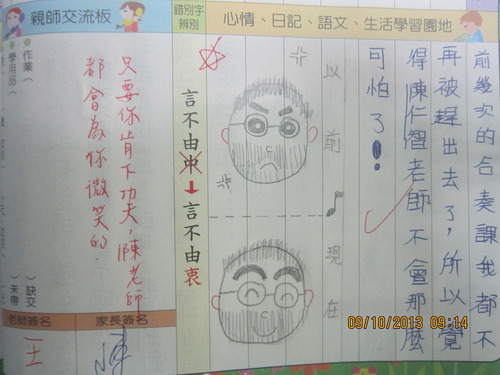 心情、日記、語文、生活學習園地
前幾次的合奏課我都不
再被趕出去了，所以覺
得陳仁智老師不會那麼
可怕了！
以前
現在
錯別字
辨別
言不由中
言不由衷
親師交流板
只要你肯下功夫，陳老師
都會為你微笑的。
作業
學用品
缺交
未帶
老師簽名
家長簽名
王
陳
09/10/2013 09:14